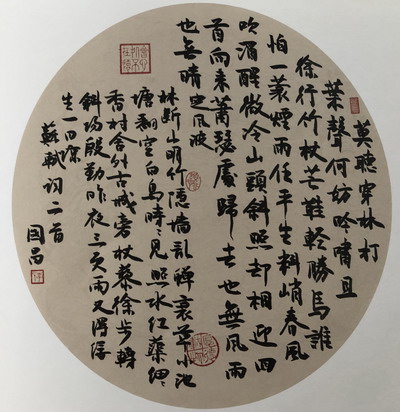 莫聽穿林打
葉聲何妨吟嘯且
徐行竹杖芒鞋輕勝馬誰
怕一蓑煙雨任平生料峭春風
吹酒醒微冷山頭斜照却相迎回
首向来蕭瑟處歸去也無風雨
也無晴 定風波
林斷山明竹隱墻亂蟬衰草小池
塘翻空白鳥時〻見照水紅蕖細〻
香村舍外古城旁杖藜徐步轉
斜陽殷勤昨夜三更雨又得浮
生一日凉
蘇軾詞二首
國昌